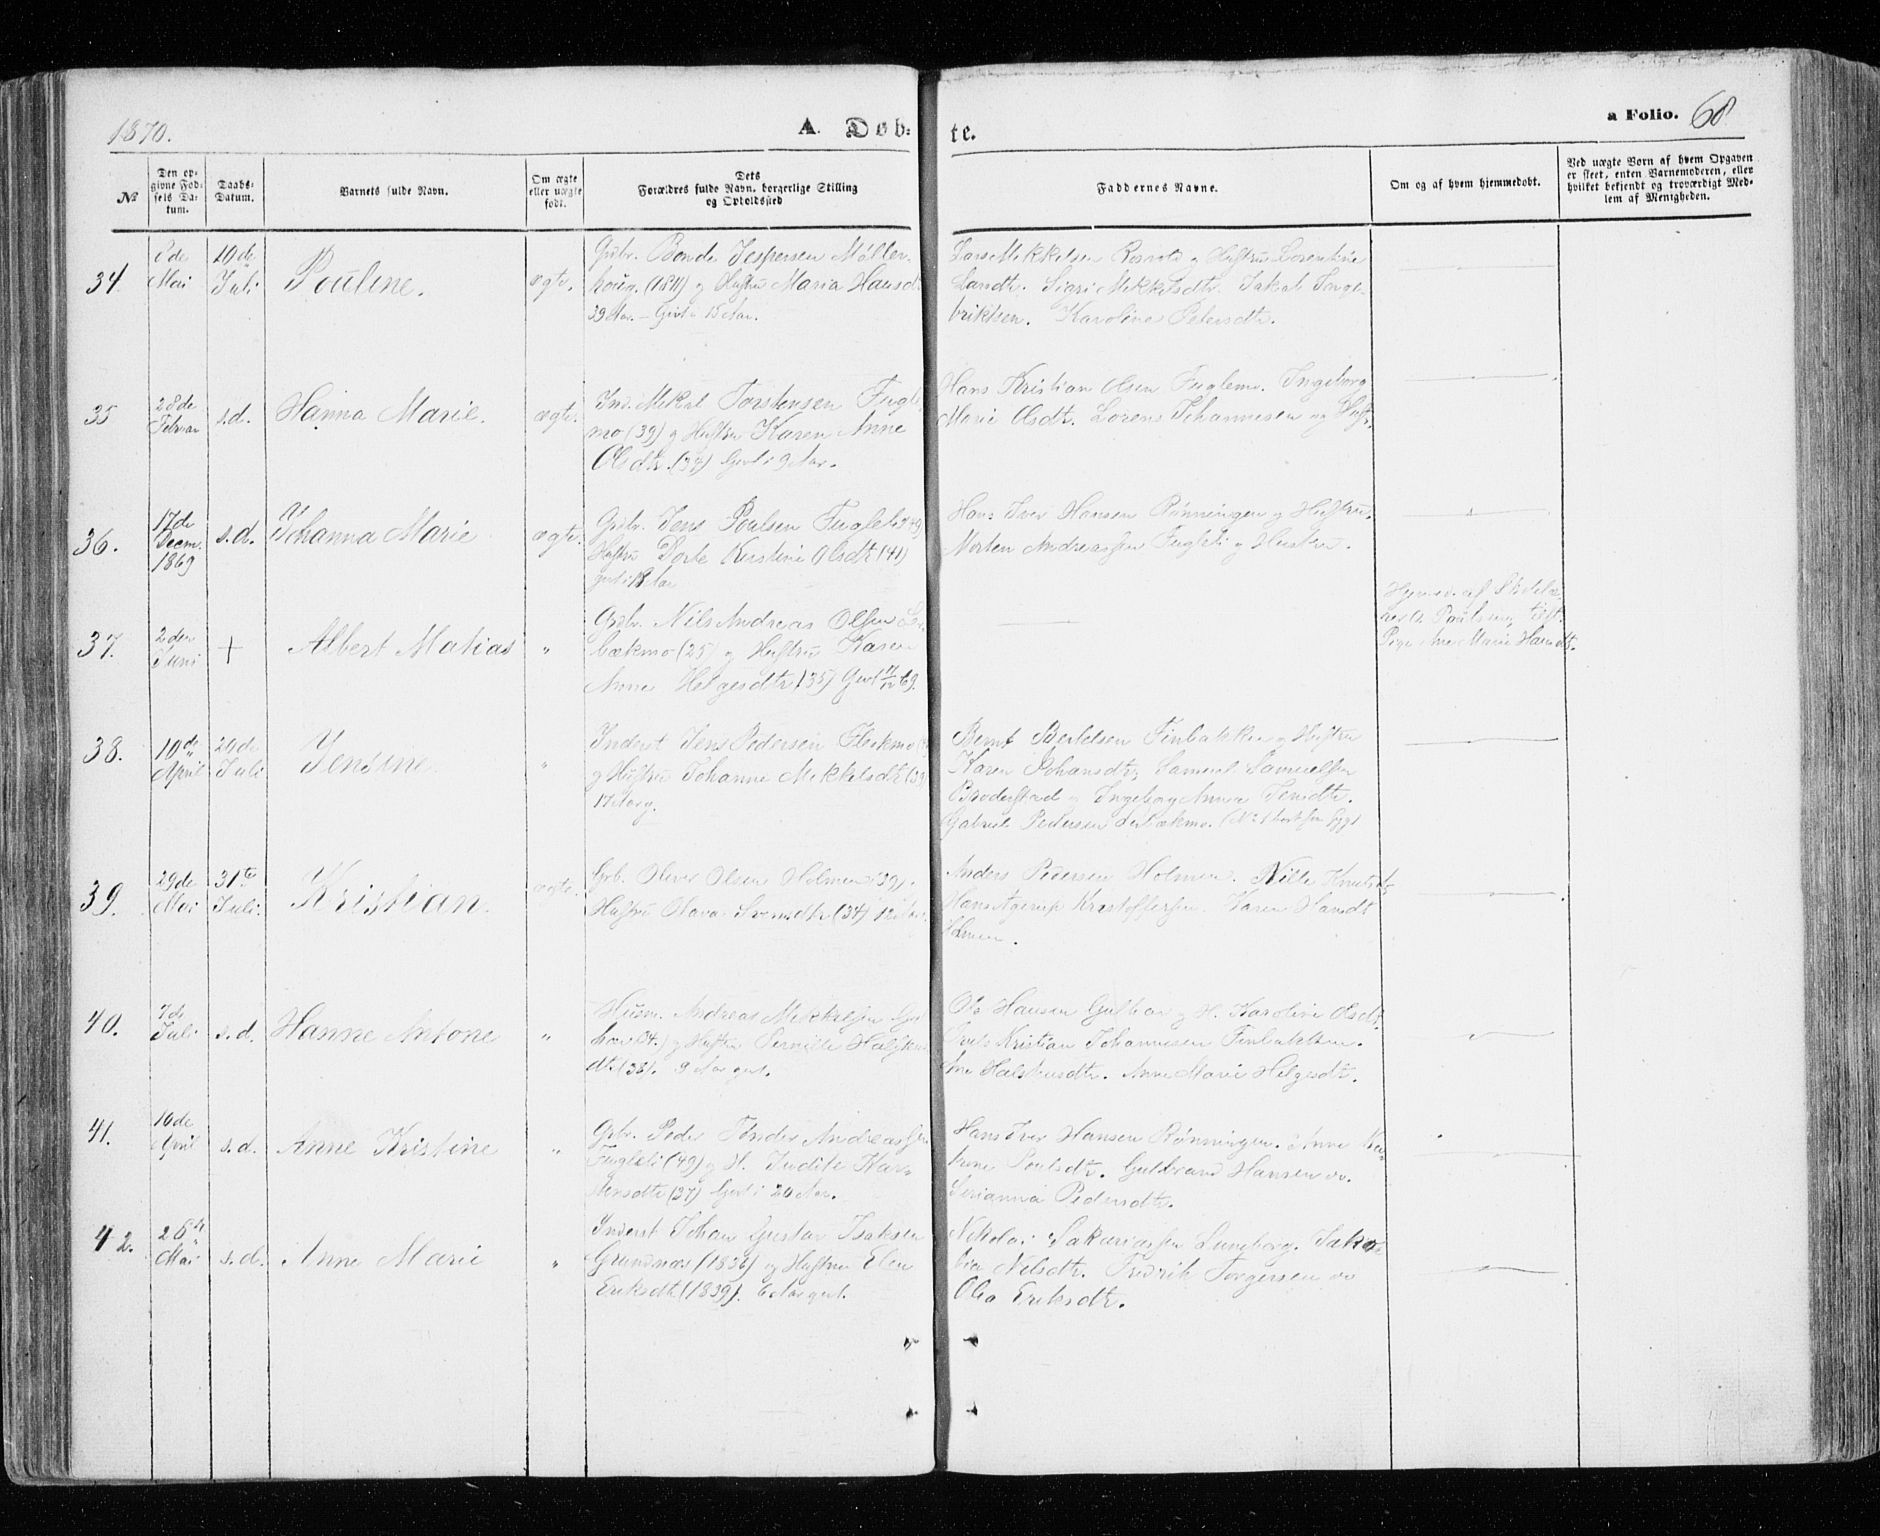 1870.
A. Døb-
te.
a Folio. 68
№
Den op-
givne Fød-
sels Da-
tum.
Daabs-
Datum.
Barnets fulde Navn.
Om ægte
eller uægte
født.
Dets
Forældres fulde Navn, borgerlige Stilling
og Opholdssted
Faddernes Navne.
Om og af hvem hjemmedøbt.
Ved uægte Børn af hvem Opgaven
er skeet, enten Barnemoderen, eller
hvilket bekjendt og troværdigt Med-
lem af Menigheden.
34.
8de
Mai
10de
Juli
Pouline.
ægte.
Grdbr. Bonde Jespersen Møller-
houg. (1811) g Hustru Maria Hansdt
39 Aar. – Givt i 15 Aar.
Lars Mekkelsen Rosvold g Hustru Lorentine
Landtr. Sigri Mekkelsdtr. Jakob Inge-
briktsen. Karoline Petersdtr.
35
28de
Februar
s.d.
Hanna Marie.
ægte.
Ind. Mikal Torstensen Fugle
mo (39) g Hustru Karen Anne
Olsdtr. (34) Givt i 9 Aar.
Hans Kristian Olsen Fuglemo. Ingeborg
Marie Olsdtr. Lorens Johannesen og Hustr.
36.
17de
Decm.
1869
s.d.
Johanna Marie
ægte.
Grdbr. Jens Poulsen Fugleli (49)
Hustru Dorte Kirstine Olsdtr (41)
givt i 18 Aar
Hans Iver Hansen Rønningen g Hustru.
Morten Andreassen Fugleli g Hustru.
37.
2den
Juni
+
Albert Matias
"
Grdbr. Nils Andreas Olsen
bækmo (25) g Hustru Karen
Anne Helgesdtr (35) Givt 69.
Hjemmed. af
Poulsen,
Pige Ane Marie Hansdt.
38.
10de
April
20de
Juli
Jensine
"
Inderst Jens Pedersen
g Hustru Johanne Mekkelsdtr (39)
17 Aar g.
Bernt Bertelsen Finbakken g Hustru
Karen Johansdtr, Samuel Samuelsen
Broderstad g Ingeborg Anna Jensdtr.
Gabriel Pedersen
39.
29de
Mai
31te
Juli.
Kristian.
ægte.
Grb. Oliver Olsen Holmen (39).
Hustru Olava Svendsdtr (34) 12 Aar.
Anders Pedersen Holmen. Nille Knutsdt,
Hans Agerup Kristoffersen. Karen Hansdt
Holmen.
40.
7de
Juli
s.d.
Hanne Antone
"
Husm. Andreas Mekkelsen
g Hustru Pernille
dtr. (38). 9 Aar givt.
Ole Hansen g H. Karoline Olsdt.
Kristian Johannesen Finbakken.
Ane Anne Marie Helgesdtr.
41.
10de
April
s.d.
Anne Kristine
"
Grbr. Peder Tønder Andreassen
Fugleli (49) g H. Judite Kar-
stensdtr (37) Givt i 20 Aar.
Hans Iver Hansen Rønningen. Anne Ka-
trine Poulsdtr. Guldbrand Hansen do.
Serianna Pedersdtr.
42.
Mai
s.d.
Anne Marie
"
Inderst Johan Gustav Isaksen
Grundnæs (1836) g Hustru Elen
Eriksdtr (1839). 6 Aar givt.
Nikolai Sakariassen Luneborg. Jako-
bia Nilsdtr. Fredrik Torgersen do
Olia Eriksdtr.